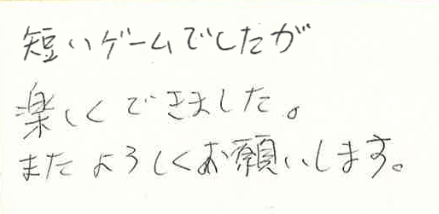 短いゲームでしたが
楽しくできました。
またよろしくお願いします。